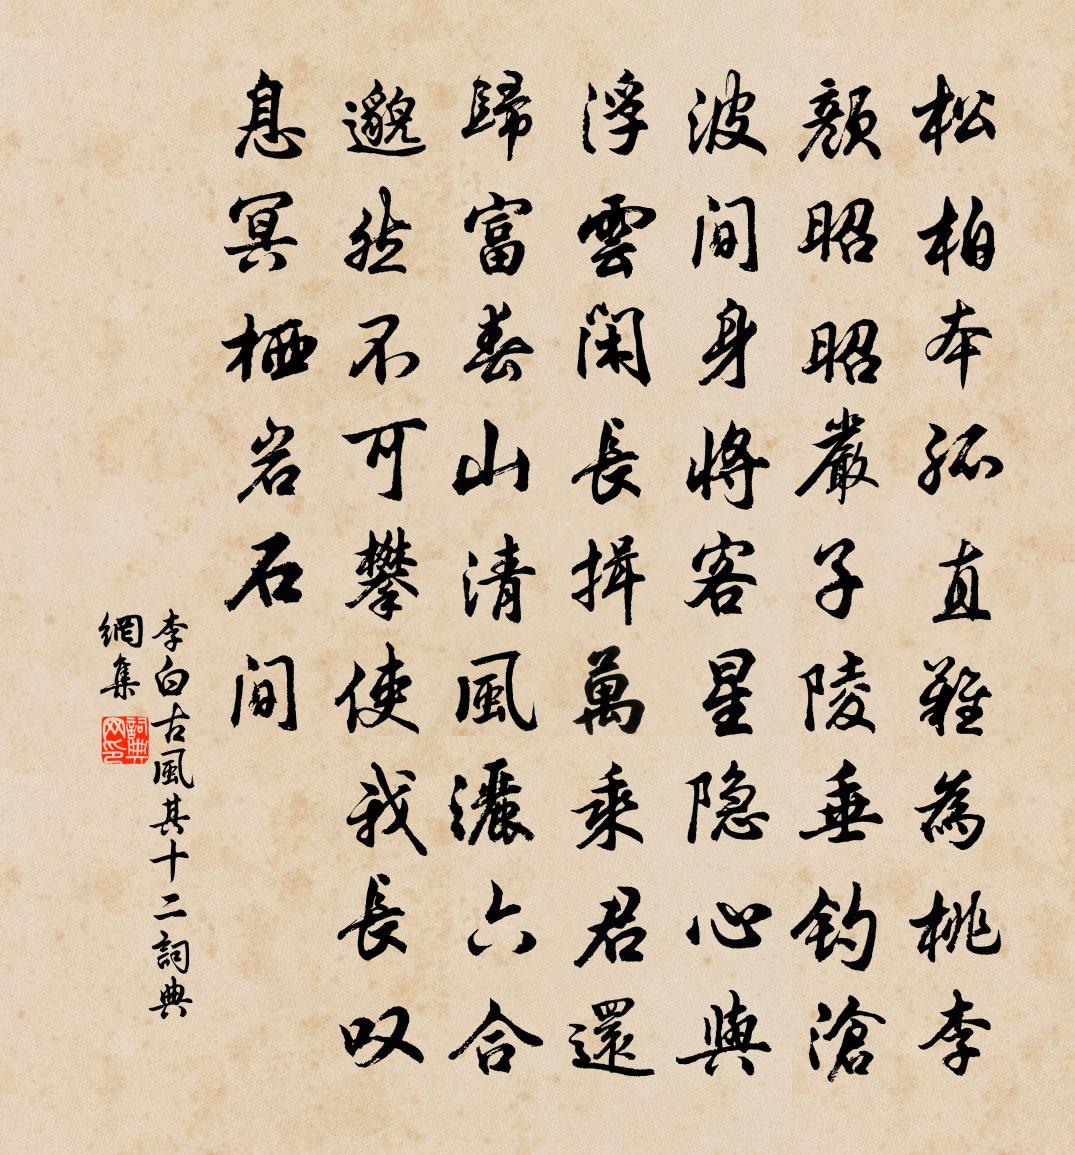 松柏本孤直難為桃李
顏昭昭嚴子陵垂釣滄
波間身將客星隐心與
浮雲閑長揖萬乘君還
歸富春山清風灑六合
邈然不可攀使我長叹
息冥栖岩石間
李白古風其十二詞典
網集
詞典
网印